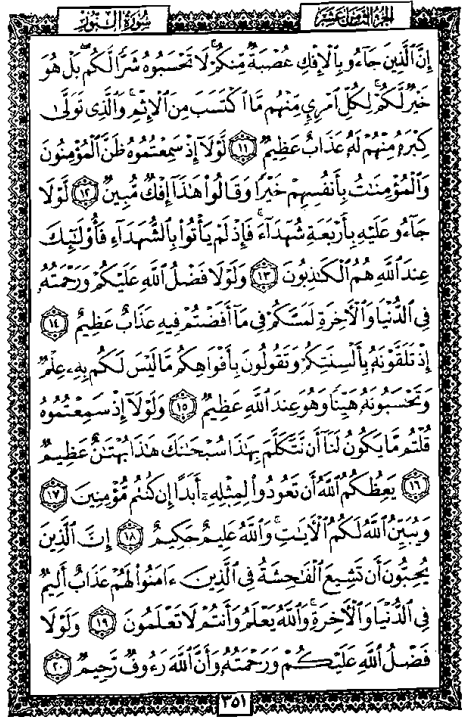 سُورَةُ النُّورِ الجُزءُ الثَّامِنَ عَشَرَ
إِنَّ ٱلَّذِينَ جَآءُو بِٱلْإِفْكِ عُصْبَةٌ مِّنكُمْ لَا تَحْسَبُوهُ شَرًّا لَّكُم بَلْ هُوَ
خَيْرٌ لَّكُمْ لِكُلِّ ٱمْرِئٍ مِّنْهُم مَّا ٱكْتَسَبَ مِنَ ٱلْإِثْمِ وَٱلَّذِى تَوَلَّىٰ
كِبْرَهُۥ مِنْهُمْ لَهُۥ عَذَابٌ عَظِيمٌ ١١ لَّوْلَآ إِذْ سَمِعْتُمُوهُ ظَنَّ ٱلْمُؤْمِنُونَ
وَٱلْمُؤْمِنَٰتُ بِأَنفُسِهِمْ خَيْرًا وَقَالُوا۟ هَٰذَآ إِفْكٌ مُّبِينٌ ١٢ لَّوْلَا
جَآءُو عَلَيْهِ بِأَرْبَعَةِ شُهَدَآءَ فَإِذْ لَمْ يَأْتُوا۟ بِٱلشُّهَدَآءِ فَأُو۟لَٰٓئِكَ
عِندَ ٱللَّهِ هُمُ ٱلْكَٰذِبُونَ ١٣ وَلَوْلَا فَضْلُ ٱللَّهِ عَلَيْكُمْ وَرَحْمَتُهُۥ
فِى ٱلدُّنْيَا وَٱلْءَاخِرَةِ لَمَسَّكُمْ فِى مَآ أَفَضْتُمْ فِيهِ عَذَابٌ عَظِيمٌ ١٤
إِذْ تَلَقَّوْنَهُۥ بِأَلْسِنَتِكُمْ وَتَقُولُونَ بِأَفْوَاهِكُم مَّا لَيْسَ لَكُم بِهِۦ عِلْمٌ
وَتَحْسَبُونَهُۥ هَيِّنًا وَهُوَ عِندَ ٱللَّهِ عَظِيمٌ ١٥ وَلَوْلَآ إِذْ سَمِعْتُمُوهُ
قُلْتُم مَّا يَكُونُ لَنَآ أَن نَّتَكَلَّمَ بِهَٰذَا سُبْحَٰنَكَ هَٰذَا بُهْتَٰنٌ عَظِيمٌ
١٦ يَعِظُكُمُ ٱللَّهُ أَن تَعُودُوا۟ لِمِثْلِهِۦٓ أَبَدًا إِن كُنتُم مُّؤْمِنِينَ ١٧
وَيُبَيِّنُ ٱللَّهُ لَكُمُ ٱلْءَايَٰتِ وَٱللَّهُ عَلِيمٌ حَكِيمٌ ١٨ إِنَّ ٱلَّذِينَ
يُحِبُّونَ أَن تَشِيعَ ٱلْفَٰحِشَةُ فِى ٱلَّذِينَ ءَامَنُوا۟ لَهُمْ عَذَابٌ أَلِيمٌ
فِى ٱلدُّنْيَا وَٱلْءَاخِرَةِ وَٱللَّهُ يَعْلَمُ وَأَنتُمْ لَا تَعْلَمُونَ ١٩ وَلَوْلَا
فَضْلُ ٱللَّهِ عَلَيْكُمْ وَرَحْمَتُهُۥ وَأَنَّ ٱللَّهَ رَءُوفٌ رَّحِيمٌ ٢٠
٣٥١